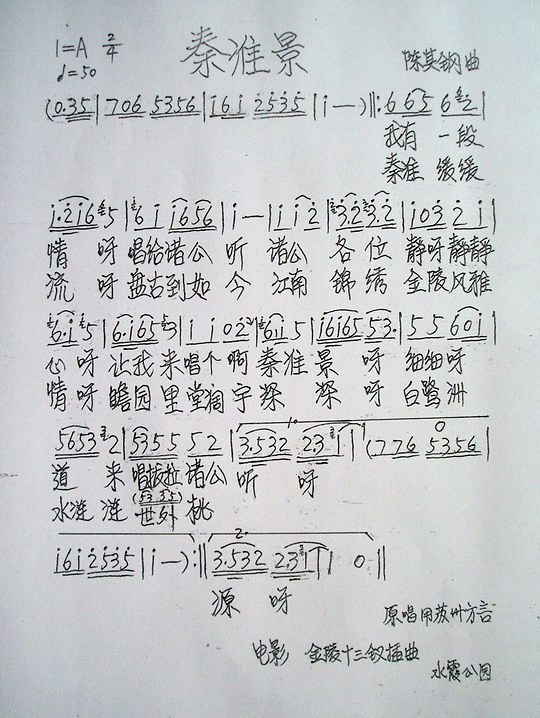 1=A 2/4
♩=50
秦淮景
陈其钢曲
(0.35|706 5356|i6i 2535|i—)‖:665 62|
我有 一段
秦淮 缓缓
i.2i65|6i i656|i—|ii2|3.23.2|i0321|
情 呀 唱给诸公 听 诸公 各位 静呀静静
流 呀 盘古到如 今 江南 锦绣 金陵风雅
6.i5|6.i653|ii02|6i5|i6i65 53.|5560i|
心 呀 让我 来唱个 啊 秦淮 景 呀 细细呀
情 呀 瞻园 里堂阔 宇 深 深 呀 白鹭 洲
56532|535552|3.532 2.31|(776 5356|
道 来 唱拔拉 诸公 听 呀
水涟 涟 世外 桃
(53 35)
i6i 2535|i—):‖3.532 2.31|1 0‖
源 呀
原唱用苏州方言
电影 金陵十三钗插曲
水霞公园